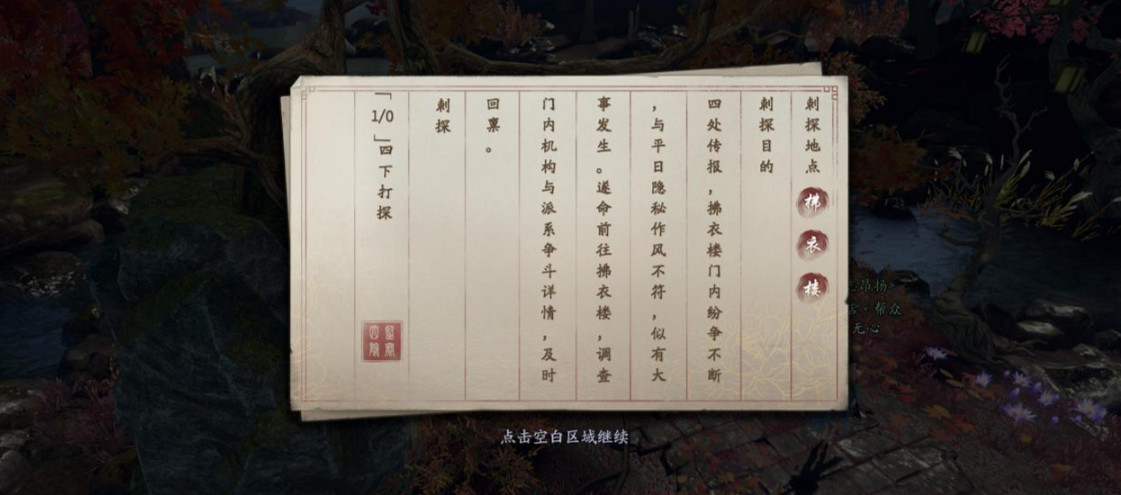 刺探地点 拂衣楼
刺探目的
四处传报，拂衣楼门内纷争不断
，与平日隐秘作风不符，似有大
事发生。遂命前往拂衣楼，调查
门内机构与派系争斗详情，及时
回禀。
刺探
「1/0」四下打探
点击空白区域继续
帮众
无心